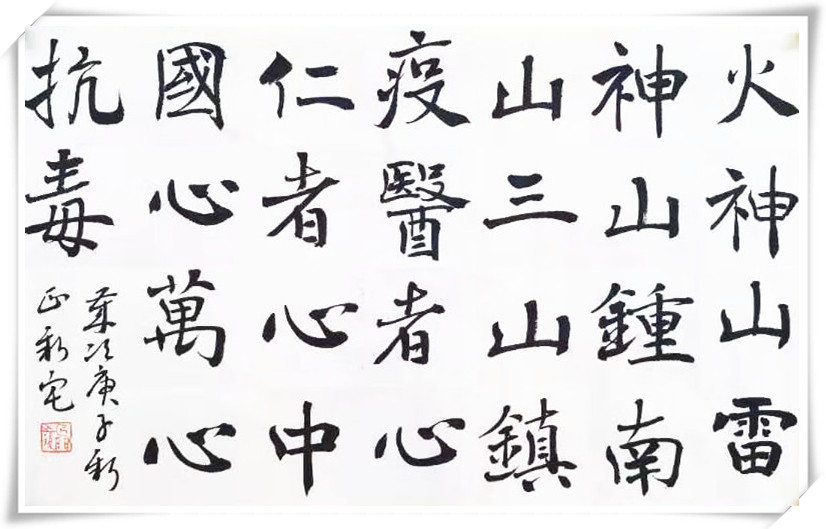 火神山雷
神山鍾南
山三山鎮
疫醫者心
仁者心中
國心萬心
抗毒
歲次庚子新
正